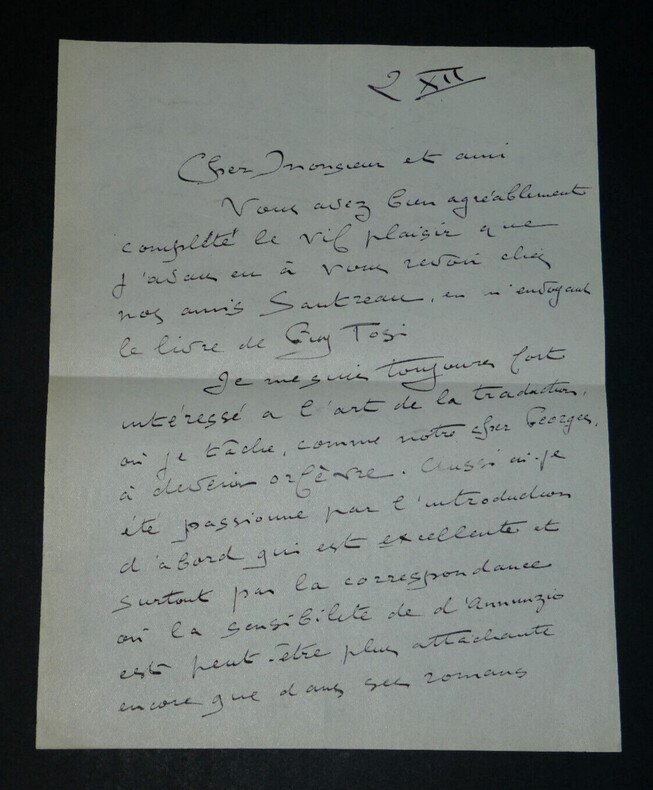 2 XII
Cher Monsieur et ami
Vous avez bien agréablement
complété le vif plaisir que
j'avais eu à vous revoir chez
nos amis Sautreau, en m'envoyant
le livre de Guy Tosi
Je me suis toujours fort
intéressé a l'art de la traduction,
où je tâche, comme notre cher Georges,
à devenir orfèvre. Aussi ai-je
été passionné par l'introduction
d'abord qui est excellente et
surtout par la correspondance
où la sensibilité de d'Annunzio
est peut-être plus attachante
encore que dans ses romans